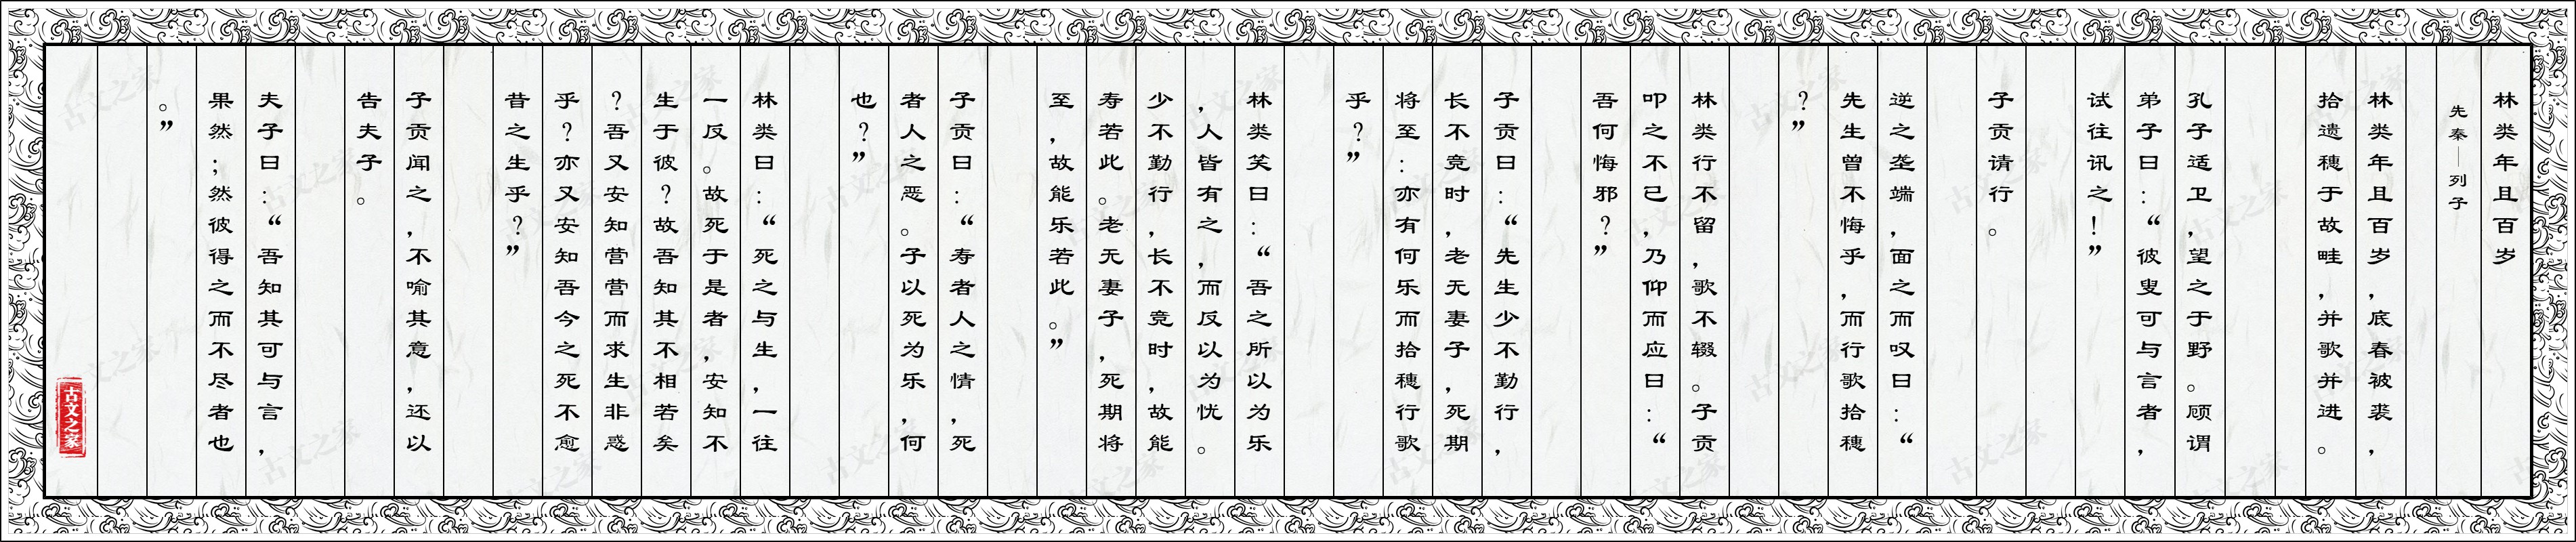 林类年且百岁
先秦—列子
林类年且百岁，底春被裘，
拾遗穗于故畦，并歌并进。
孔子适卫，望之于野。顾谓
弟子曰：“彼叟可与言者，
试往讯之！”
子贡请行。
逆之垄端，面之而叹曰：“
先生曾不悔乎，而行歌拾穗
？”
林类行不留，歌不辍。子贡
叩之不已，乃仰而应曰：“
吾何悔邪？”
子贡曰：“先生少不勤行，
长不竞时，老无妻子，死期
将至：亦有何乐而拾穗行歌
乎？”
林类笑曰：“吾之所以为乐
，人皆有之，而反以为忧。
少不勤行，长不竞时，故能
寿若此。老无妻子，死期将
至，故能乐若此。”
子贡曰：“寿者人之情，死
者人之恶。子以死为乐，何
也？”
林类曰：“死之与生，一往
一反。故死于是者，安知不
生于彼？故吾知其不相若矣
？吾又安知营营而求生非惑
乎？亦又安知吾今之死不愈
昔之生乎？”
子贡闻之，不喻其意，还以
告夫子。
夫子曰：“吾知其可与言，
果然；然彼得之而不尽者也
。”
古文之家